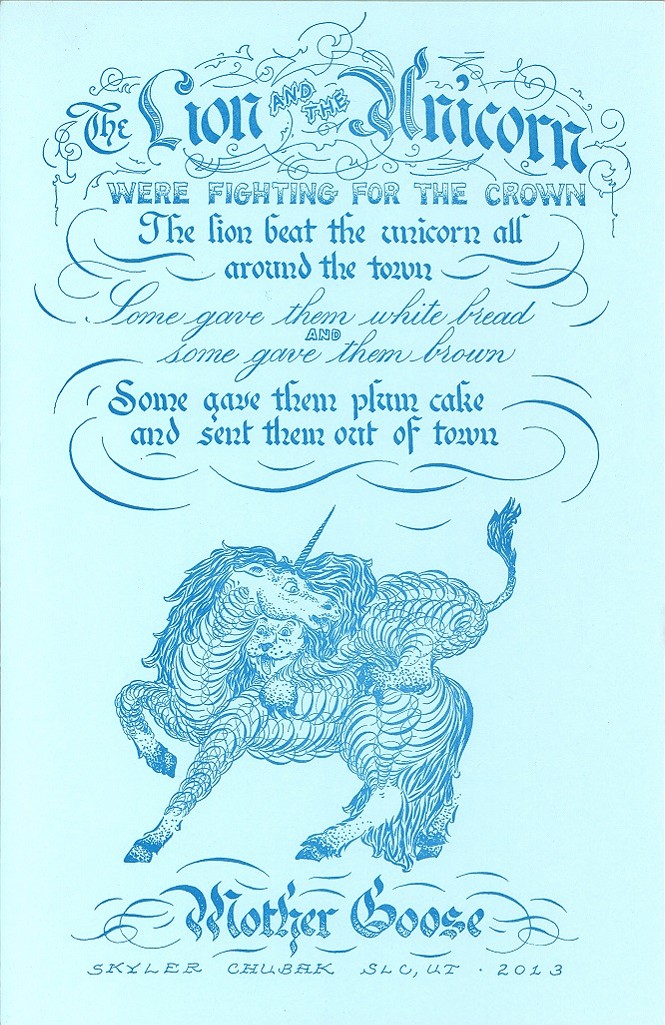 The Lion AND THE Unicorn
WERE FIGHTING FOR THE CROWN
The lion beat the unicorn all
around the town
Some gave them white bread
AND
some gave them brown
Some gave them plum cake
and sent them out of town
Mother Goose
SKYLER CHUBAK SLC, UT · 2013